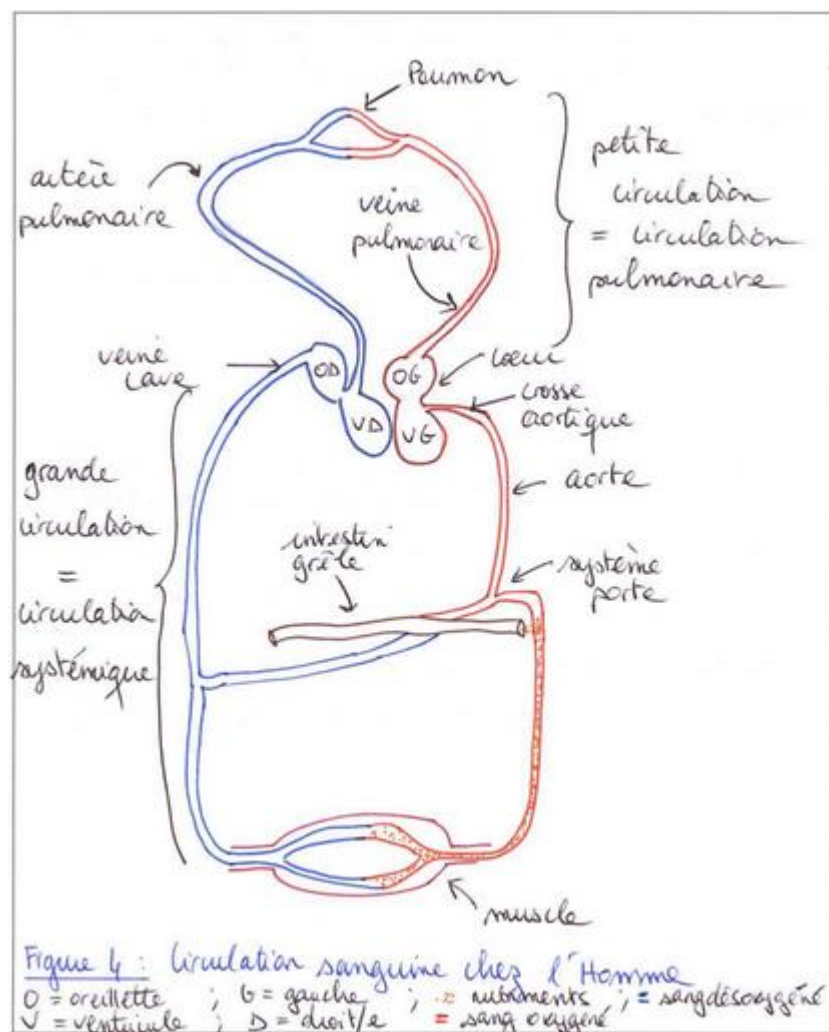 Poumon
artère
pulmonaire
petite
circulation
= circulation
pulmonaire
veine
pulmonaire
veine
cave
OD
OG
cœur
VD
VG
crosse
aortique
aorte
grande
circulation
=
circulation
systémique
intestin
grêle
système
porte
muscle
Figure 4 : Circulation sanguine chez l'Homme
O = oreillette ; G = gauche ; nutriments ; = sang désoxygéné
V = ventricule ; D = droit/e = sang oxygéné